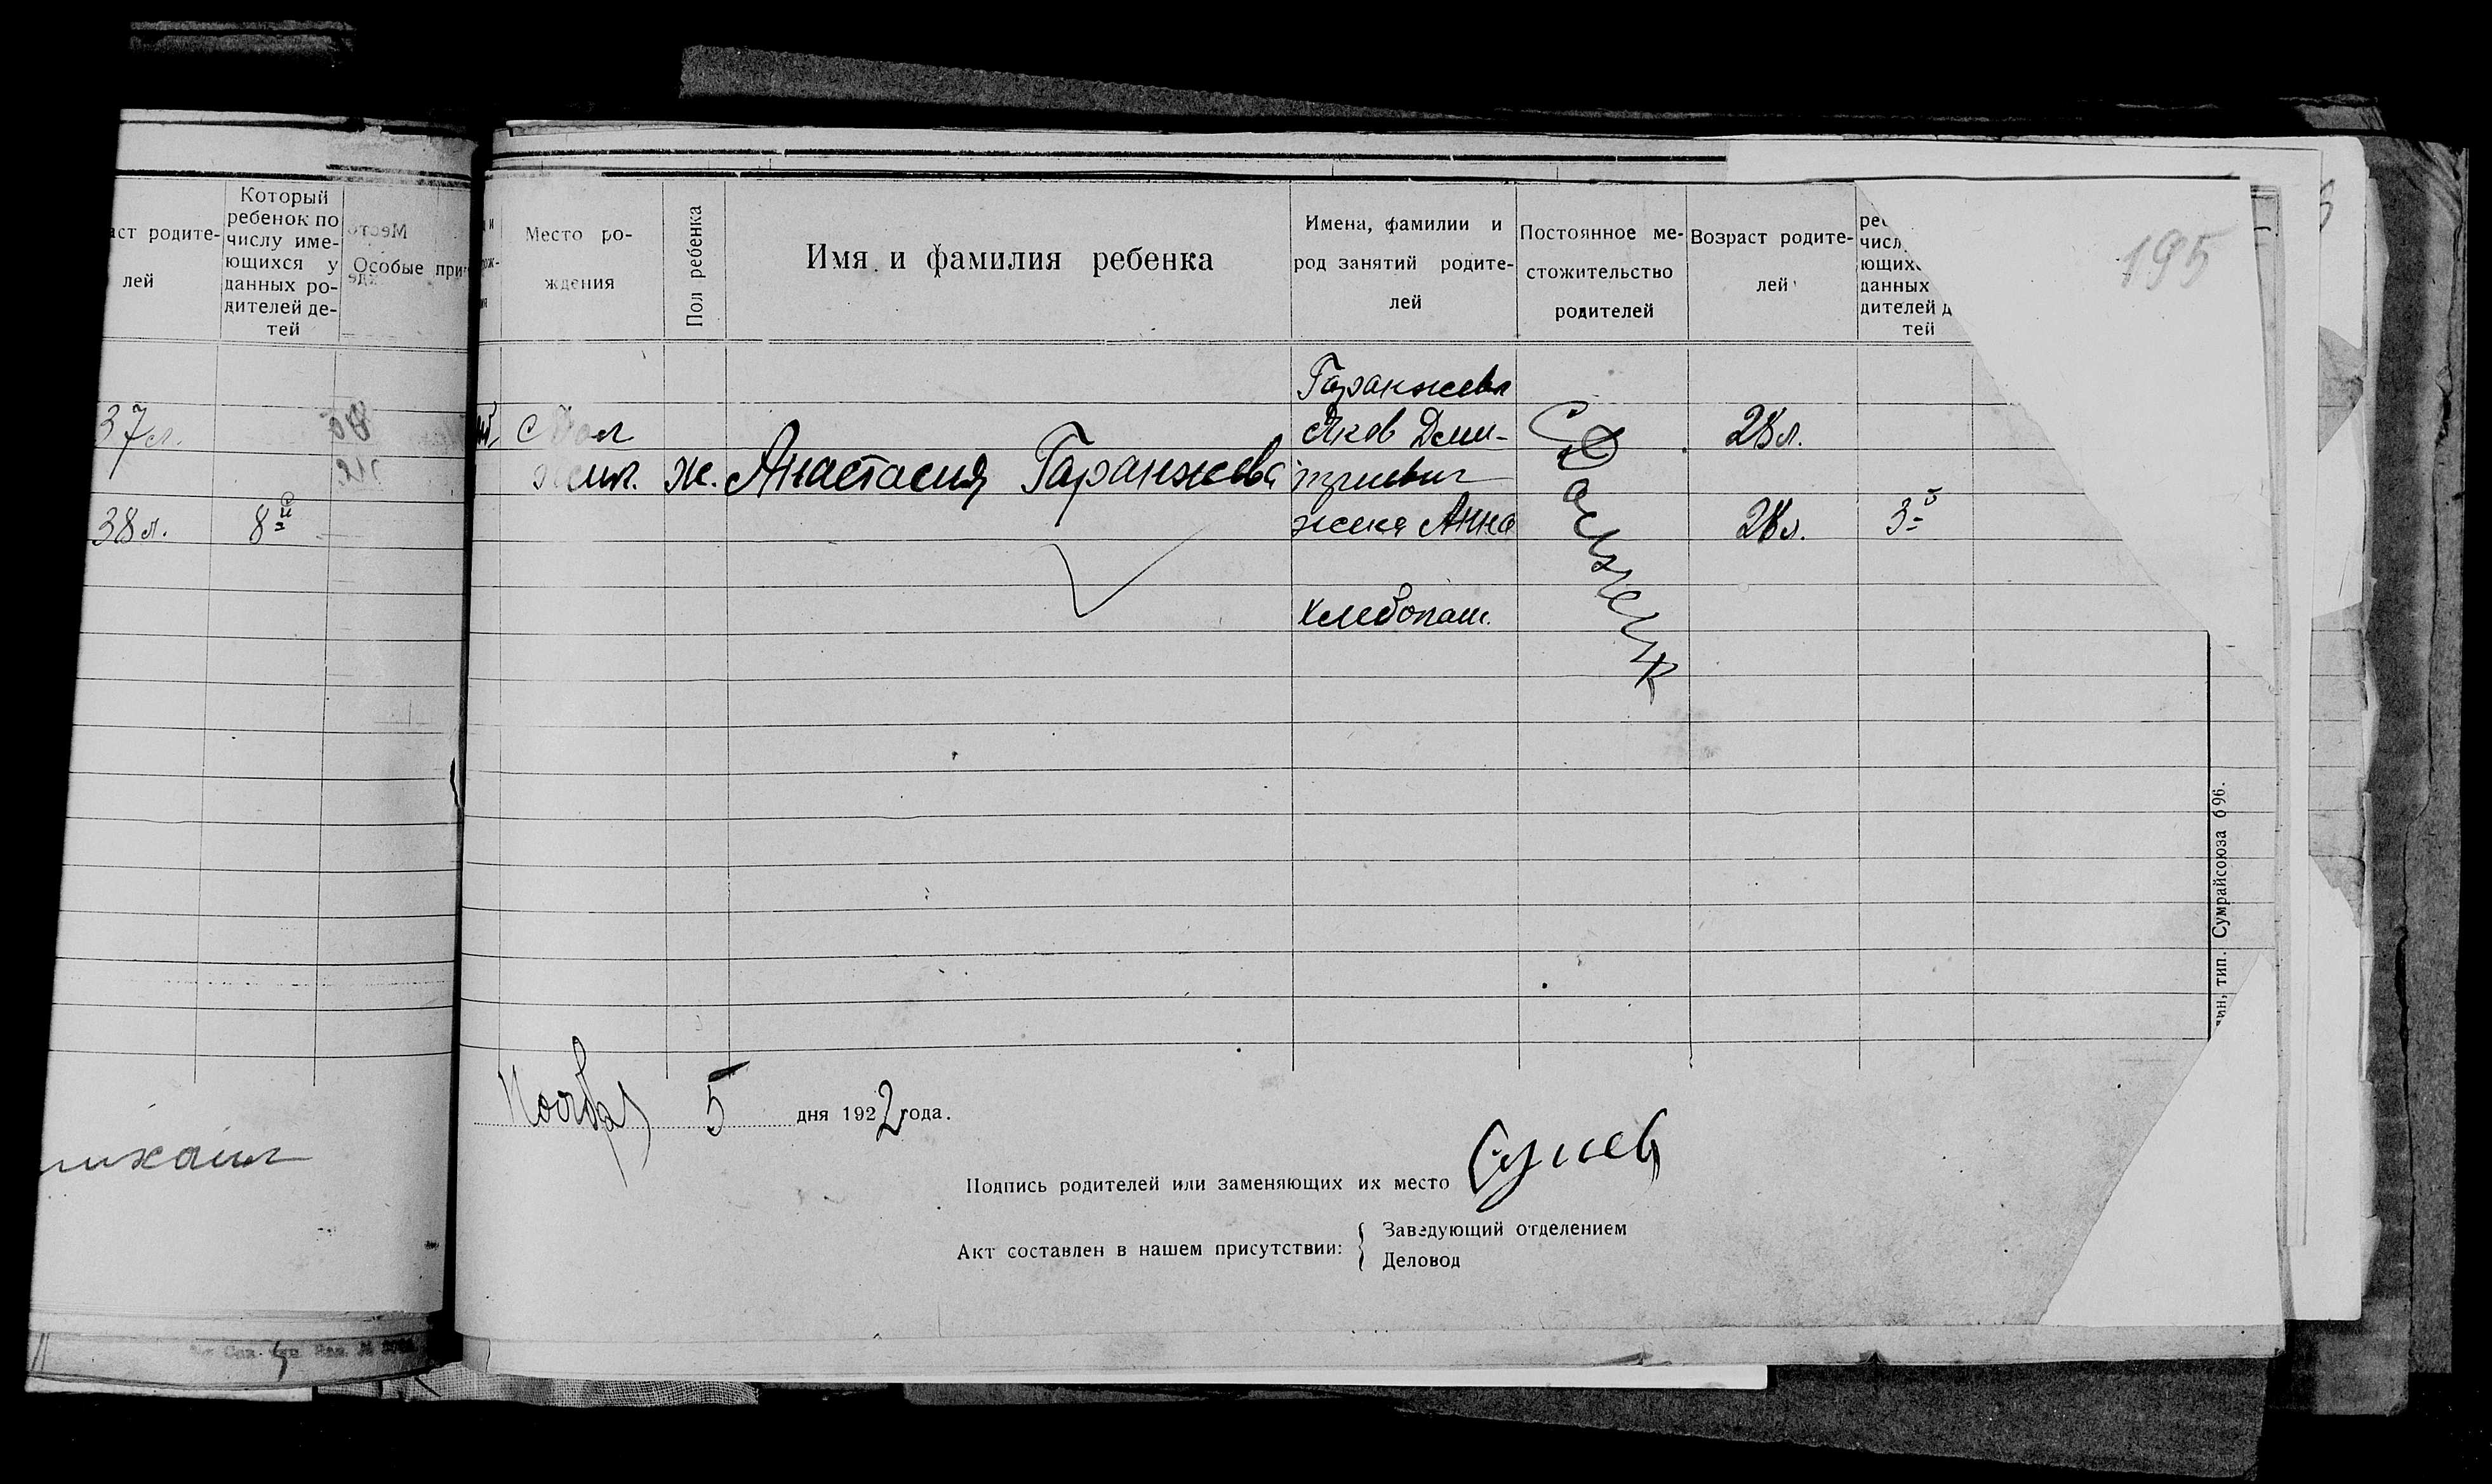 аст родите-
лей
Который
ребенок по
числу име-
ющихся у
данных ро-
дителей де-
тей
Особые при
37 л.
38 л. 8й
Место ро-
ждения
Пол ребенка
Имя и фамилия ребенка
Имена, фамилии и
род занятий родите-
лей
Постоянное ме-
стожительство
родителей
Возраст родите-
лей
числ
ющихс
данных
дителей д
тей
195
ж. Анастасия Гаранжева
Гаранжева
Яков Дми-
триевич
жена Анна
Хлебопаш.
28 л.
28 л.
3й
Ноября 5 дня 1922 года.
Подпись родителей или заменяющих их место
Акт составлен в нашем присутствии:
Заведующий отделением
Деловод
тип. Сумрайсоюза 696.